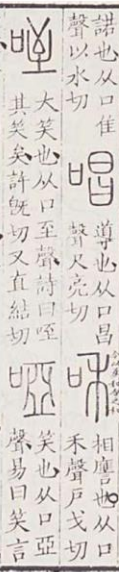 諾也从口隹
聲以水切
唱
導也从口昌
聲尺亮切
咊
相譍也从口
禾聲戶戈切
咥
大笑也从口至聲詩曰咥
其笑矣許旣切又直結切
啞
笑也从口亞
聲易曰笑言